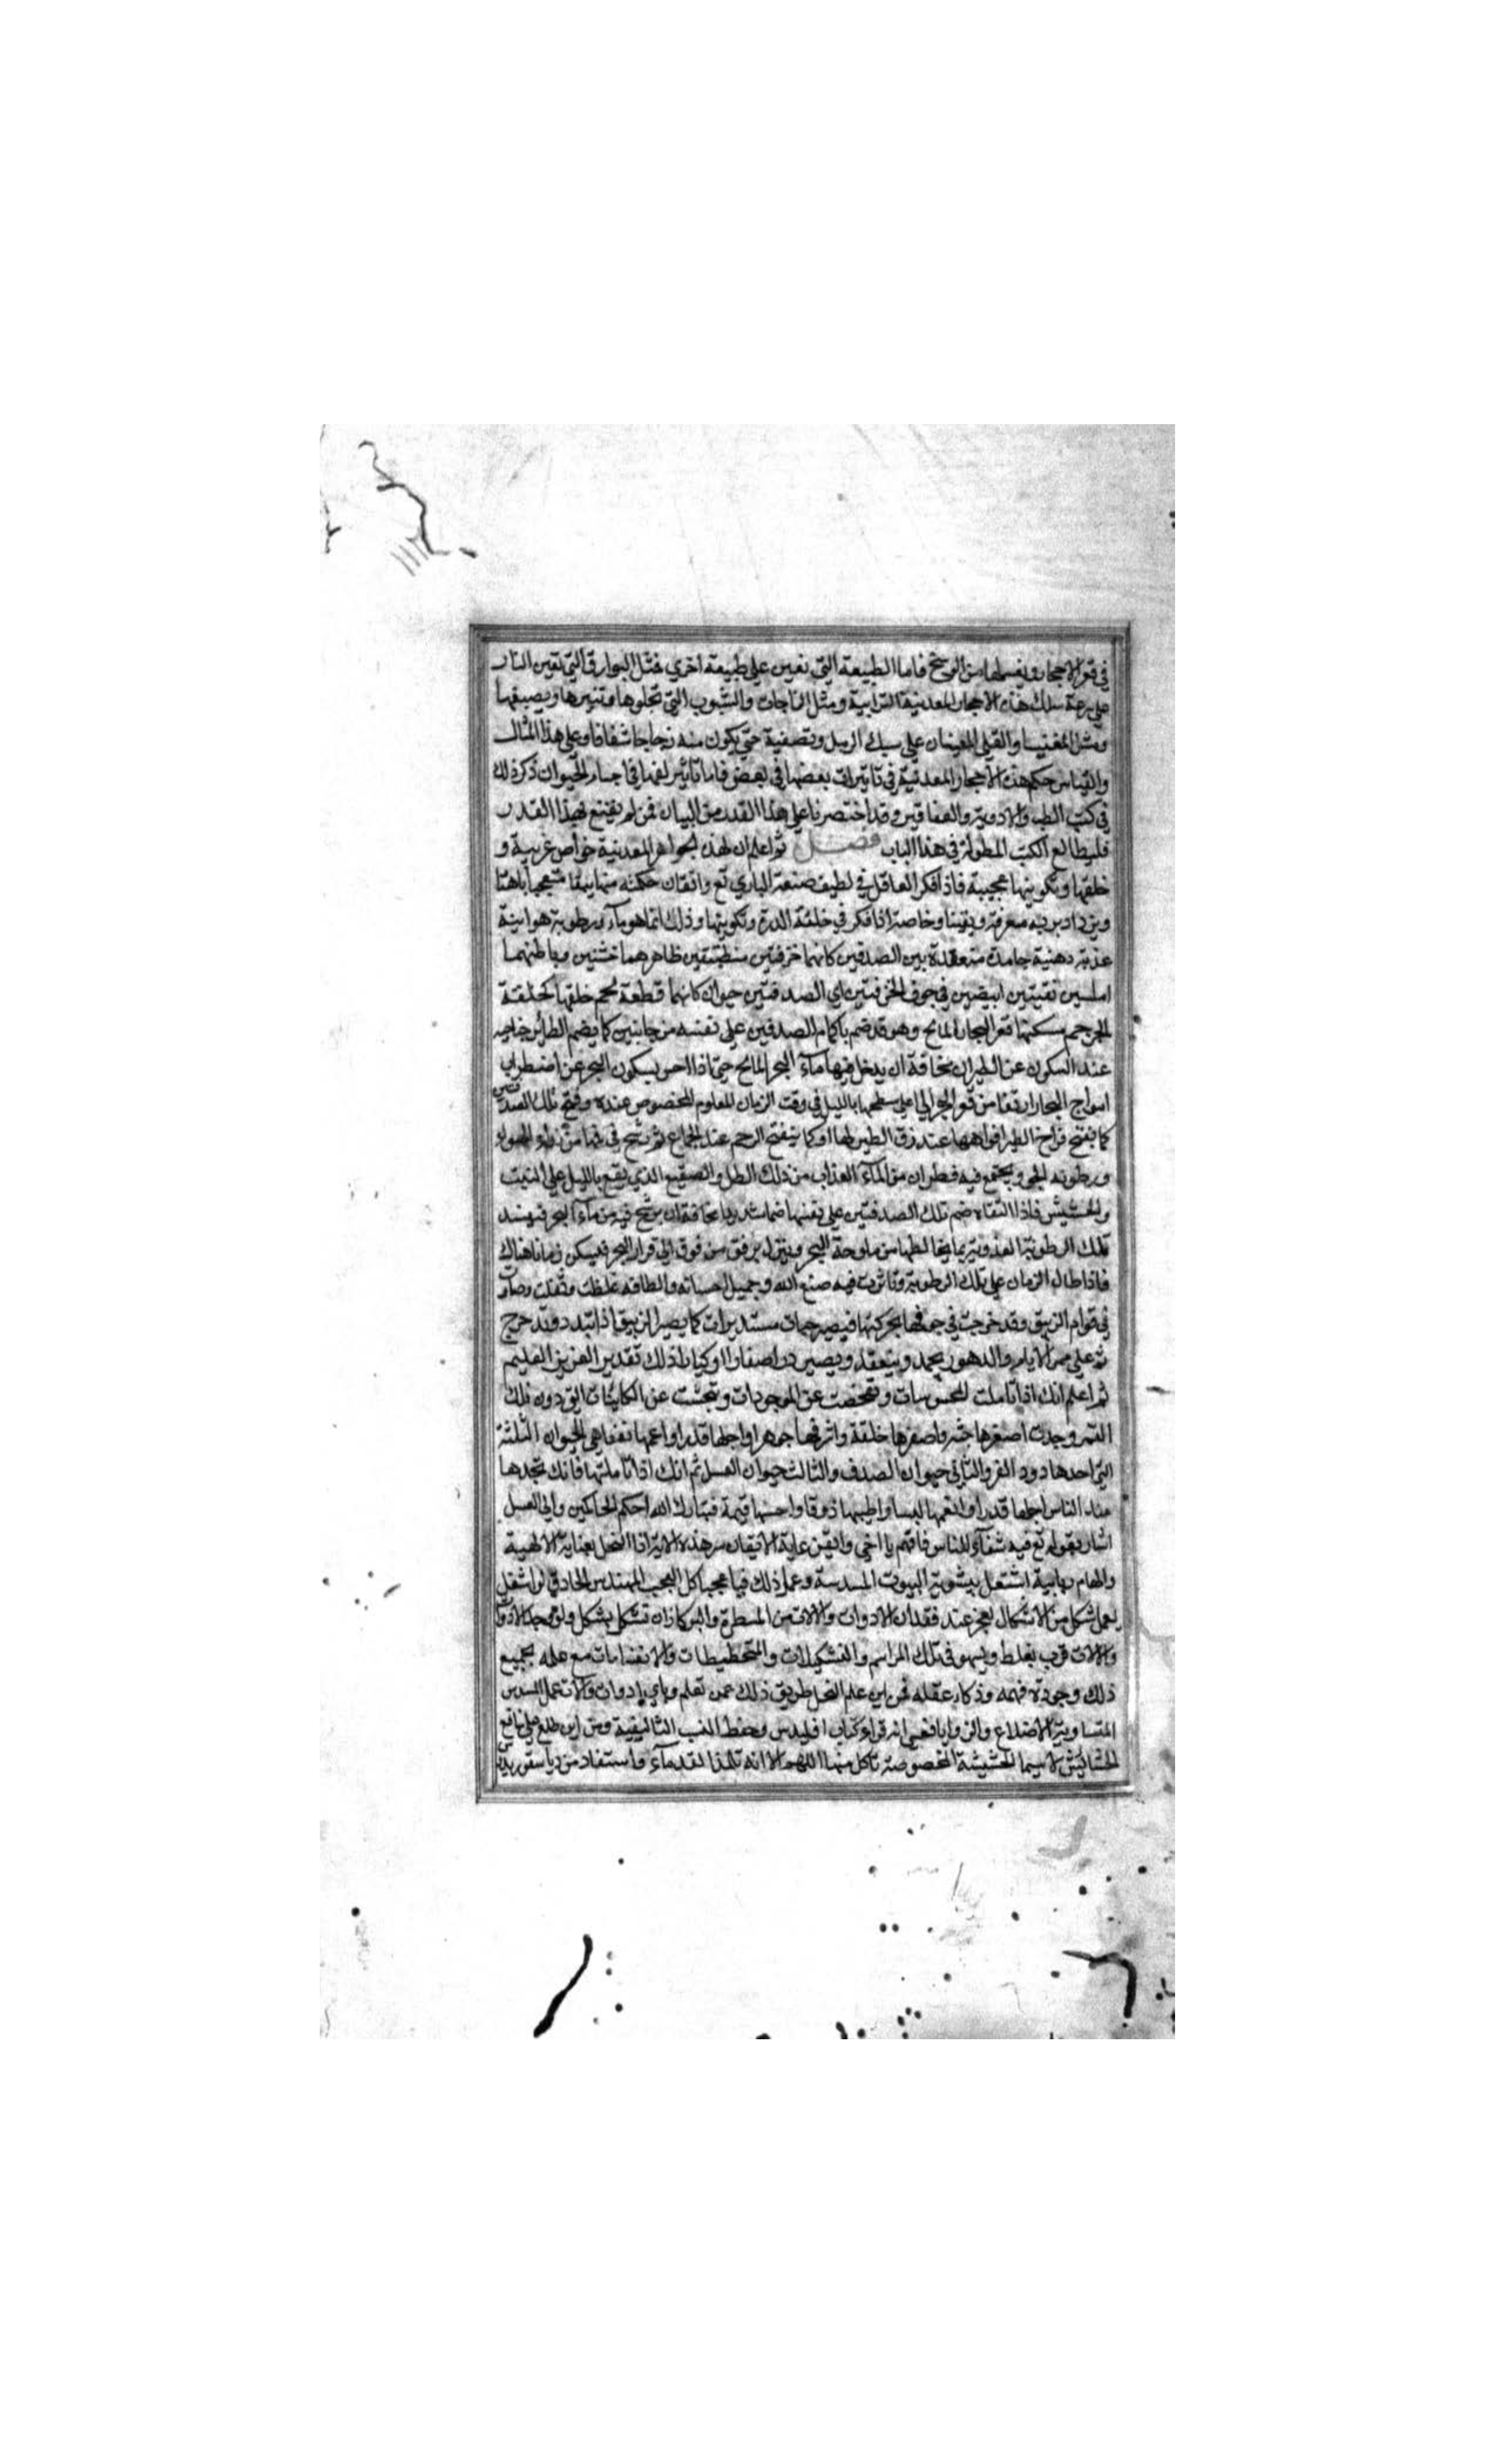 في قعر الاحجار ويغسلها من الوسخ فاما الطبيعة التي تعين على طبيعة اخرى فمثل البوارق التي تعين النار
على سرعة سبك هذه الاحجار المعدنية الترابية ومثل الزاجات والشبوب التي تجلوها وتنيرها ويصبغها
ومثل المغنيسا والقلي المعينان على سبك الرمل وتصفية حتى يكون منه زجاجا شفافا وعلى هذا المثال
والقياس حكم هذه الاحجار المعدنية في تاثيرات بعضها في بعض فاما تاثير لغيها في اجساد الحيوان ذكر ذلك
في كتب الطب والادوية والعقاقير وقد اختصرنا على هذا القدر من البيان فمن لم يقتنع بهذا القدر
فليطالع الكتب المطولة في هذا الباب فصل ثم اعلم ان لهذه الجواهر المعدنية خواص غريبة و
خلقها وتكوينها عجيبة فاذا فكر العاقل في لطيف صنعة الباري تع واتقان حكمته منها يبقا متعجبا باهتا
ويزداد بربه معرفة ويقينا وخاصة اذا فكر في خلقة الدرة وتكوينها وذلك انما هو ماء ورطوبة هوائية
عذبة دهنية جامدة متعقدة بين الصدفين كانهما خزفتين منطبقتين ظاهرهما خشنين وباطنهما
املسين نقيتين ابيضين في جوف الخزفتين اي الصدفتين حيوان كانها قطعة لحم خلقها كخلقة
الرحم مسكنها قعر البحار المالح وهو قد ضم باكمام الصدفين على نفسه من جانبين كما يضم الطائر جناحيه
عند السكون عن الطيران مخافة ان يدخل فيها ماء البحر المالح حتى اذا احس بسكون البحر عن اضطراب
امواج البحار ارتفعا من قعر البحر الى اعلى سطحها بالليل في وقت الزمان المعلوم المخصوص عنده وفتح تلك الصدفتين
كما يفتح فراخ الطير افواهها عند زق الطير لها او كما ينفتح الرحم عند الجماع ثم ترشح في فمها من نداوة الهواء
ورطوبة الجو ويجتمع فيه قطران من الماء العذاب من ذلك الطل والصقيع الذي يقع بالليل على النبت
والحشيش فاذا التقاه ضم تلك الصدفتين على نفسها ضما شديدا مخافة ان يرشح فيه من ماء البحر فيفسد
تلك الرطوبة العذوبية بما يخالطها من ملوحة البحر وينزل برفق من فوق الى قرار البحر فيسكن زمانا هناك
فاذا طال الزمان على تلك الرطوبة وتاثرت فيه صنع الله وجميل احسانه والطافه غلظت وثقلت وصارت
في قوام الزيبق وقد خرجت في جوفها بحركتها فيصير حبات مستديرات كما يصير الزيبق اذا تبدد وتدحرج
ثم على ممر الايام والدهور يجمد وينعقد ويصير درا صغارا او كبارا ذلك تقدير العزيز العليم
ثم اعلم انك اذا تاملت المحسوسات وتفحصت عن الموجودات وتجسست عن الكاينات التي دون فلك
القمر وجدت اصغرها جثة واصغرها خلقة واشرفها جوهرا واجلها قدرا واعمها نفعا هي الحيوان الثلثة
التي احدها دود القز والثاني حيوان الصدف والثالث حيوان العسل ثم انك اذا تاملتها فانك تجدها
عند الناس اجلها قدرا وانعمها لبسا واطيبها ذوقا واحسنها قيمة فتبارك الله احكم الحاكمين والى العسل
اشار بقوله تع فيه شفاء للناس فافهم يا اخي واتقن غاية الاتقان سر هذه الاية اذا النحل بعناية الالهية
والهام ربانية اشتغل بتسوية البيوت المسدسة وعمل ذلك فيا عجبا كل العجب المهندس الحاذق لو اشغل
يعمل شكل من الاشكال لعجز عند فقدان الادوات والالات من المسطرة والبركار ان تشكل بشكل ولو وجد الادوات
والالات قرب يغلط ويسهو في تلك المراسم والتشكيلات والتخطيطات والانقسامات مع علمه بجميع
ذلك وجودة فهمه وذكاء عقله فمن اين علم النحل طريق ذلك عمن تعلم وباي ادوات والات عمل المسدس
المتساوية الاضلاع والزوايا افعسى انه قراء كتاب اقليدس وحفظ النسب التاليفية ومن اين طلع على نافع
الحشائش لا سيما الحشيشة المخصوصة تاكل منها اللهم الا انه تلمذ القدماء واستفاد من دياسقوريدس